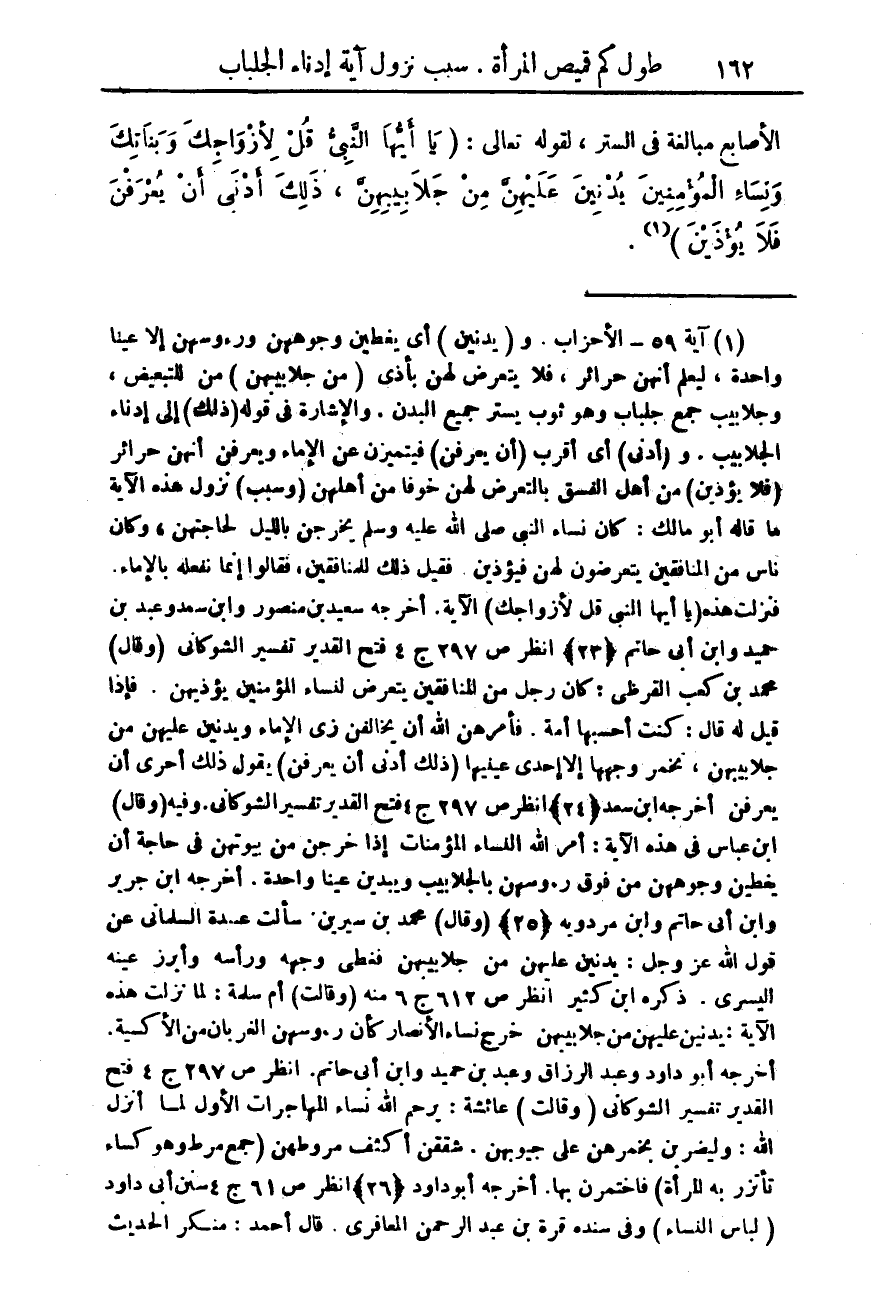 ١٦٢ طول كم قميص المرأة . سبب نزول آية إدناء الجلباب
الأصابع مبالغة فى الستر ، لقوله تعالى : ( يَا أَيُّهَا النَّبِيُّ قُلْ لِأَزْوَاجِكَ وَبَنَاتِكَ
وَنِسَاءِ الْمُؤْمِنِينَ يُدْنِينَ عَلَيْهِنَّ مِنْ جَلَابِيبِهِنَّ ، ذَلِكَ أَدْنَى أَنْ يُعْرَفْنَ
فَلَا يُؤْذَيْنَ )(١) .
(١) آية ٥٩ – الأحزاب . و ( يدنين ) أى يغطين وجوههن ورءوسهن إلا عينا
واحدة ، ليعلم أنهن حرائر ، فلا يتعرض لهن بأذى ( من جلابيبهن ) من للتبعيض ،
وجلابيب جمع جلباب وهو ثوب يستر جميع البدن . والإشارة فى قوله (ذلك) إلى إدناء
الجلابيب . و (أدنى) أى أقرب (أن يعرفن) فيتميزن عن الإماء ويعرفن أنهن حرائر
(فلا يؤذين) من أهل الفسق بالتعرض لهن خوفا من أهلهن (وسبب) نزول هذه الآية
ما قاله أبو مالك : كان نساء النبى صلى الله عليه وسلم يخرجن بالليل لحاجتهن ، وكان
ناس من المنافقين يتعرضون لهن فيؤذين . فقيل ذلك للمنافقين، فقالوا إنما نفعله بالإماء.
فنزلت هذه (يا أيها النبى قل لأزواجك) الآية. أخرجه سعيد بن منصور وابن سعد وعبد بن
حميد وابن أبى حاتم {٢٣} انظر ص ٢٩٧ ج ٤ فتح القدير تفسير الشوكانى (وقال)
محمد بن كعب القرظى : كان رجل من المنافقين يتعرض لنساء المؤمنين يؤذيهن . فإذا
قيل له قال : كنت أحسبها أمة . فأمرهن الله أن يخالفن زى الإماء ويدنين عليهن من
جلابيبهن ، تخمر وجهها إلا إحدى عينيها (ذلك أدنى أن يعرفن) يقول ذلك أحرى أن
يعرفن أخرجه ابن سعد {٢٤} انظر ص ٢٩٧ ج ٤ فتح القدير تفسير الشوكانى. وفيه (وقال)
ابن عباس فى هذه الآية : أمر الله النساء المؤمنات إذا خرجن من بيوتهن فى حاجة أن
يغطين وجوههن من فوق رءوسهن بالجلابيب ويبدين عينا واحدة . أخرجه ابن جرير
وابن أبى حاتم وابن مردويه {٢٥} (وقال) محمد بن سيرين سألت عبيدة السلمانى عن
قول الله عز وجل : يدنين عليهن من جلابيبهن فغطى وجهه ورأسه وأبرز عينه
اليسرى . ذكره ابن كثير انظر ص ٦١٢ ج ٦ منه (وقالت) أم سلمة : لما نزلت هذه
الآية : يدنين عليهن من جلابيبهن خرج نساء الأنصار كأن رءوسهن الغربان من الأكسية.
أخرجه أبو داود وعبد الرزاق وعبد بن حميد وابن أبى حاتم. انظر ص ٢٩٧ ج ٤ فتح
القدير تفسير الشوكانى ( وقالت ) عائشة : يرحم الله نساء المهاجرات الأول لما أنزل
الله : وليضربن بخمرهن على جيوبهن . شققن أكثف مروطهن (جمع مرط وهو كساء
تأتزر به المرأة) فاختمرن بها. أخرجه أبو داود {٢٦} انظر ص ٦١ ج ٤ سنن أبى داود
( لباس النساء ) وفى سنده قرة بن عبد الرحمن المعافرى . قال أحمد : منكر الحديث